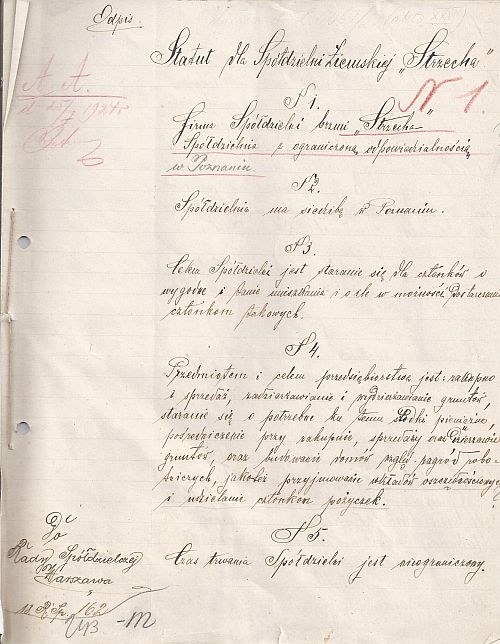 Odpis.
Statut dla Spółdzielni Ziemskiej „Strzecha"
N 1.
A. A.
1924 r
§ 1.
Firma Spółdzielni brzmi „Strzecha"
Spółdzielnia z ograniczoną odpowiedzialnością
w Poznaniu.
§ 2.
Spółdzielnia ma siedzibę w Poznaniu.
§ 3.
Celem Spółdzielni jest staranie się dla członków o
wygodne i tanie mieszkania i o ile w możności dostarczania
członkom takowych.
§ 4.
Przedmiotem i celem przedsiębiorstwa jest: zakupno
i sprzedaż, zadzierżawianie i wydzierżawianie gruntów,
staranie się o potrzebne ku temu środki pieniężne,
pośredniczenie przy zakupnie, sprzedaży oraz dzierżawie
gruntów, oraz budowanie domów wzgl. zagród robo-
tniczych, jakoteż przyjmowanie wkładów oszczędnościowych
i udzielanie członkom pożyczek.
§ 5.
Czas trwania Spółdzielni jest nieograniczony.
Do
Rady Spółdzielczej
Warszawa
R. Sp. 162